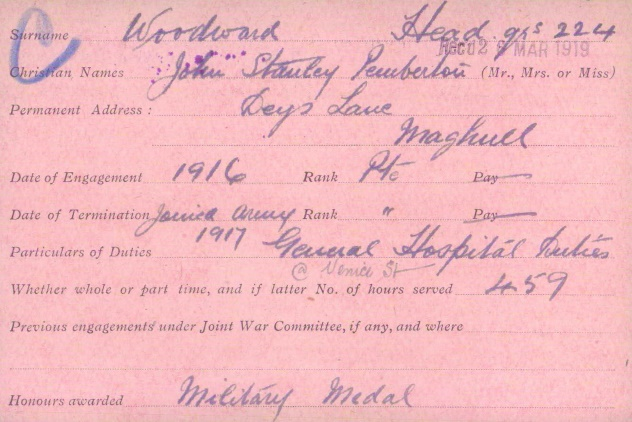 C
Surname Woodward Head. qrs 224
RECD 2 MAR 1919
Christian Names John Stanley Pemberton (Mr., Mrs. or Miss)
Permanent Address: Deys Lane
Maghull
Date of Engagement 1916 Rank Pte Pay
Date of Termination Joined Army Rank " Pay
1917
Particulars of Duties General Hospital Duties
@ Venice St
Whether whole or part time, and if latter No. of hours served 459
Previous engagements under Joint War Committee, if any, and where
Honours awarded Military Medal